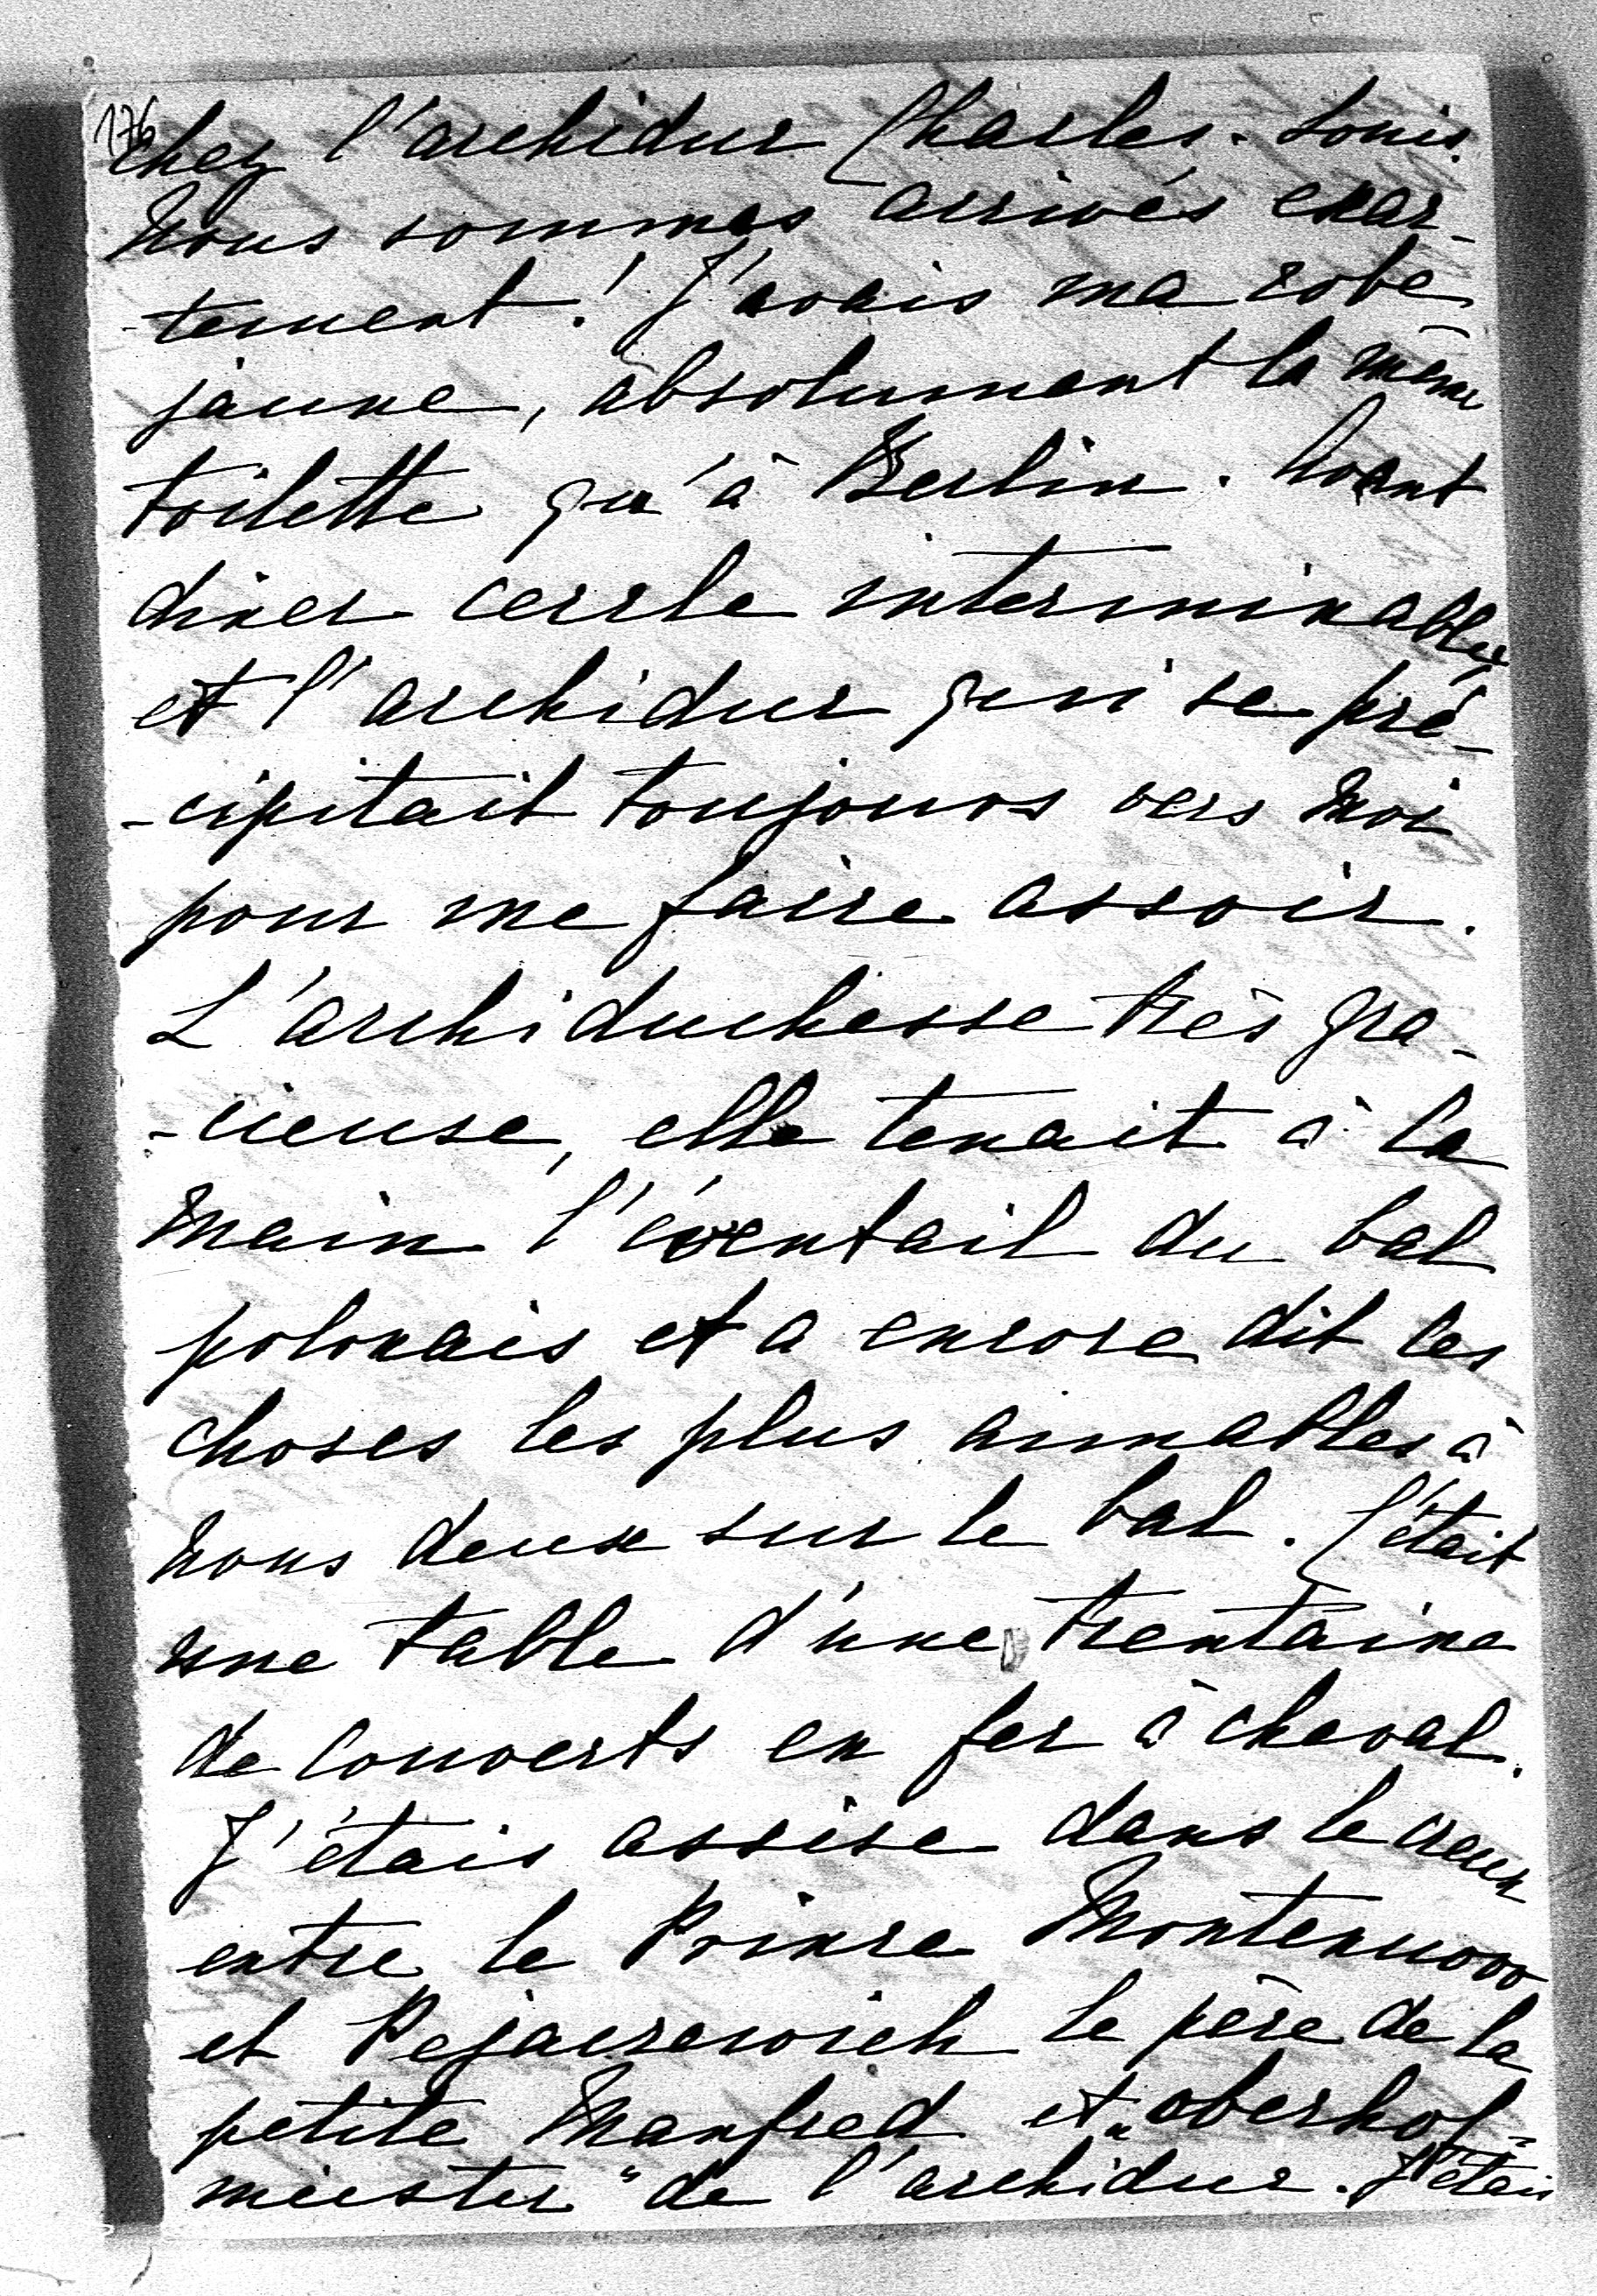 176
chez l'archiduc Charles-Louis.
Nous sommes arrivés exac-
-tement! J'avais ma robe
jaune, absolument la même
toilette qu'à Berlin. Avant
diner cercle interminable,
et l'archiduc qui se pré-
-cipitait toujours vers moi
pour me faire assoir.
L'archiduchesse très gra-
-cieuse, elle tenait à la
main l'éventail du bal
polonais et a encore dit les
choses les plus aimables à
nous deux sur le bal. C'était
une table d'une trentaine
de couverts en fer à cheval.
J'étais assise dans le creux
entre le Prince Montenuovo
et Pejacsewich le père de la
petite Manfred et „oberhof-
meister" de l'archiduc. J'étais